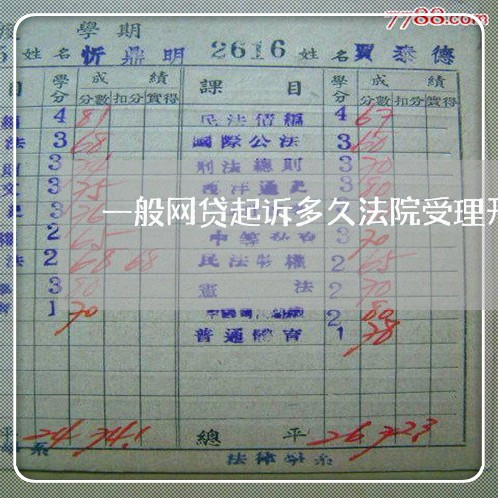 7788.com
學期
姓名 忻鼎明 2616 姓名 賈泰德
目 學分 成績 課目 學分 成績
分數 扣分 實得 分數 扣分 實得
4 81 民法債編 4 67
法 3 68 國際公法 3 60
3 刑法總則 3 70
3 75 西洋通史 3 80
一般网贷起诉多久法院受理
2 65 3 70
法 2 68 68 民法物權 2 65
3 80 憲法 2 70
1 70 2 80
普通體育 1 78
平 24 74.1 總平 26 72.3
系 法律學系